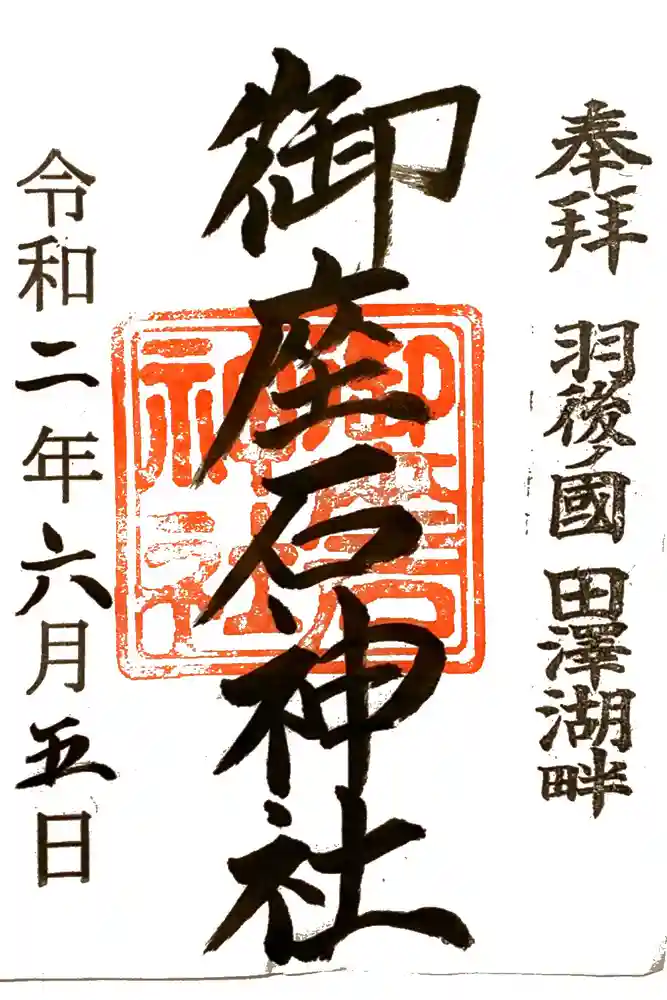 奉拝 羽後ノ國 田澤湖畔
御座石神社
御座石神社
令和二年六月五日